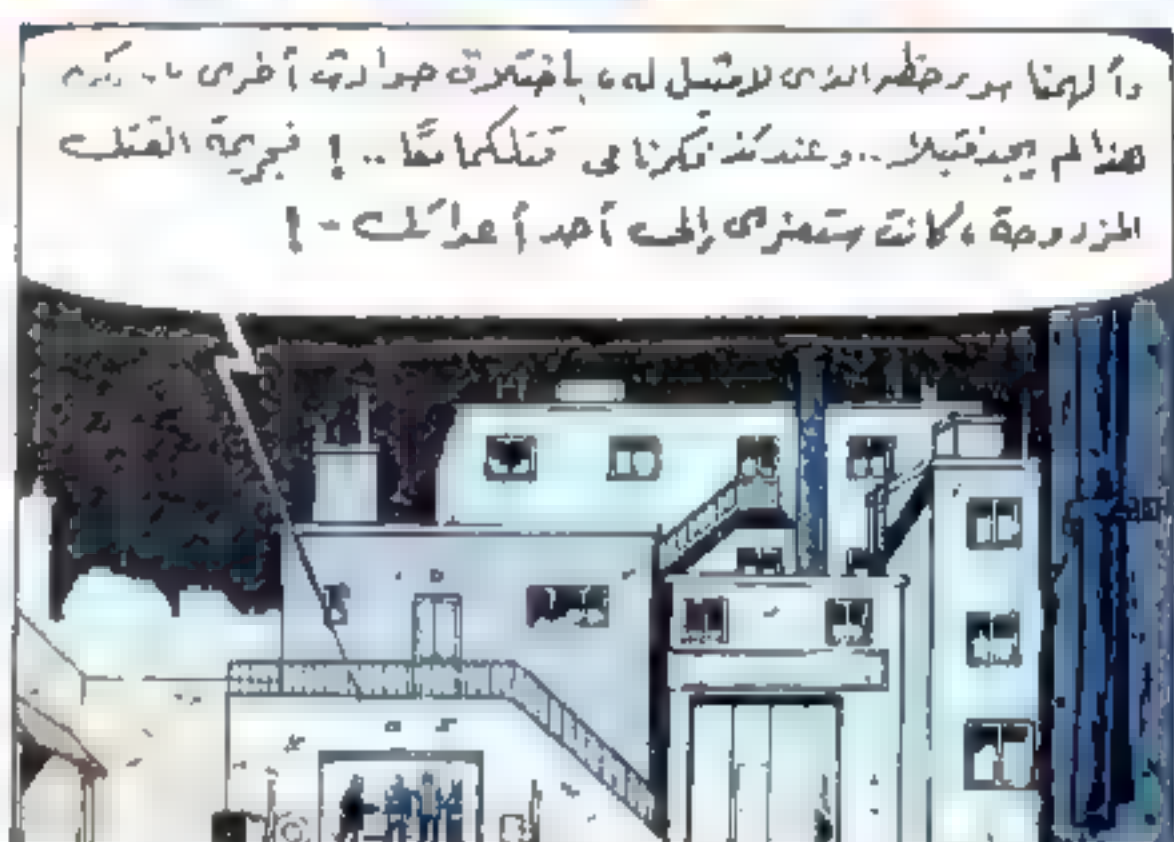 وألهمنا سوء حظه الذى لا مثيل له، باختلاق حوادث أخرى .. لكن
هذا لم يجد فتيلا .. وعندئذ فكرنا فى قتلكما معًا .. ! فجريمة القتل
المزدوجة، كانت ستعزى إلى أحد أعدائك - !